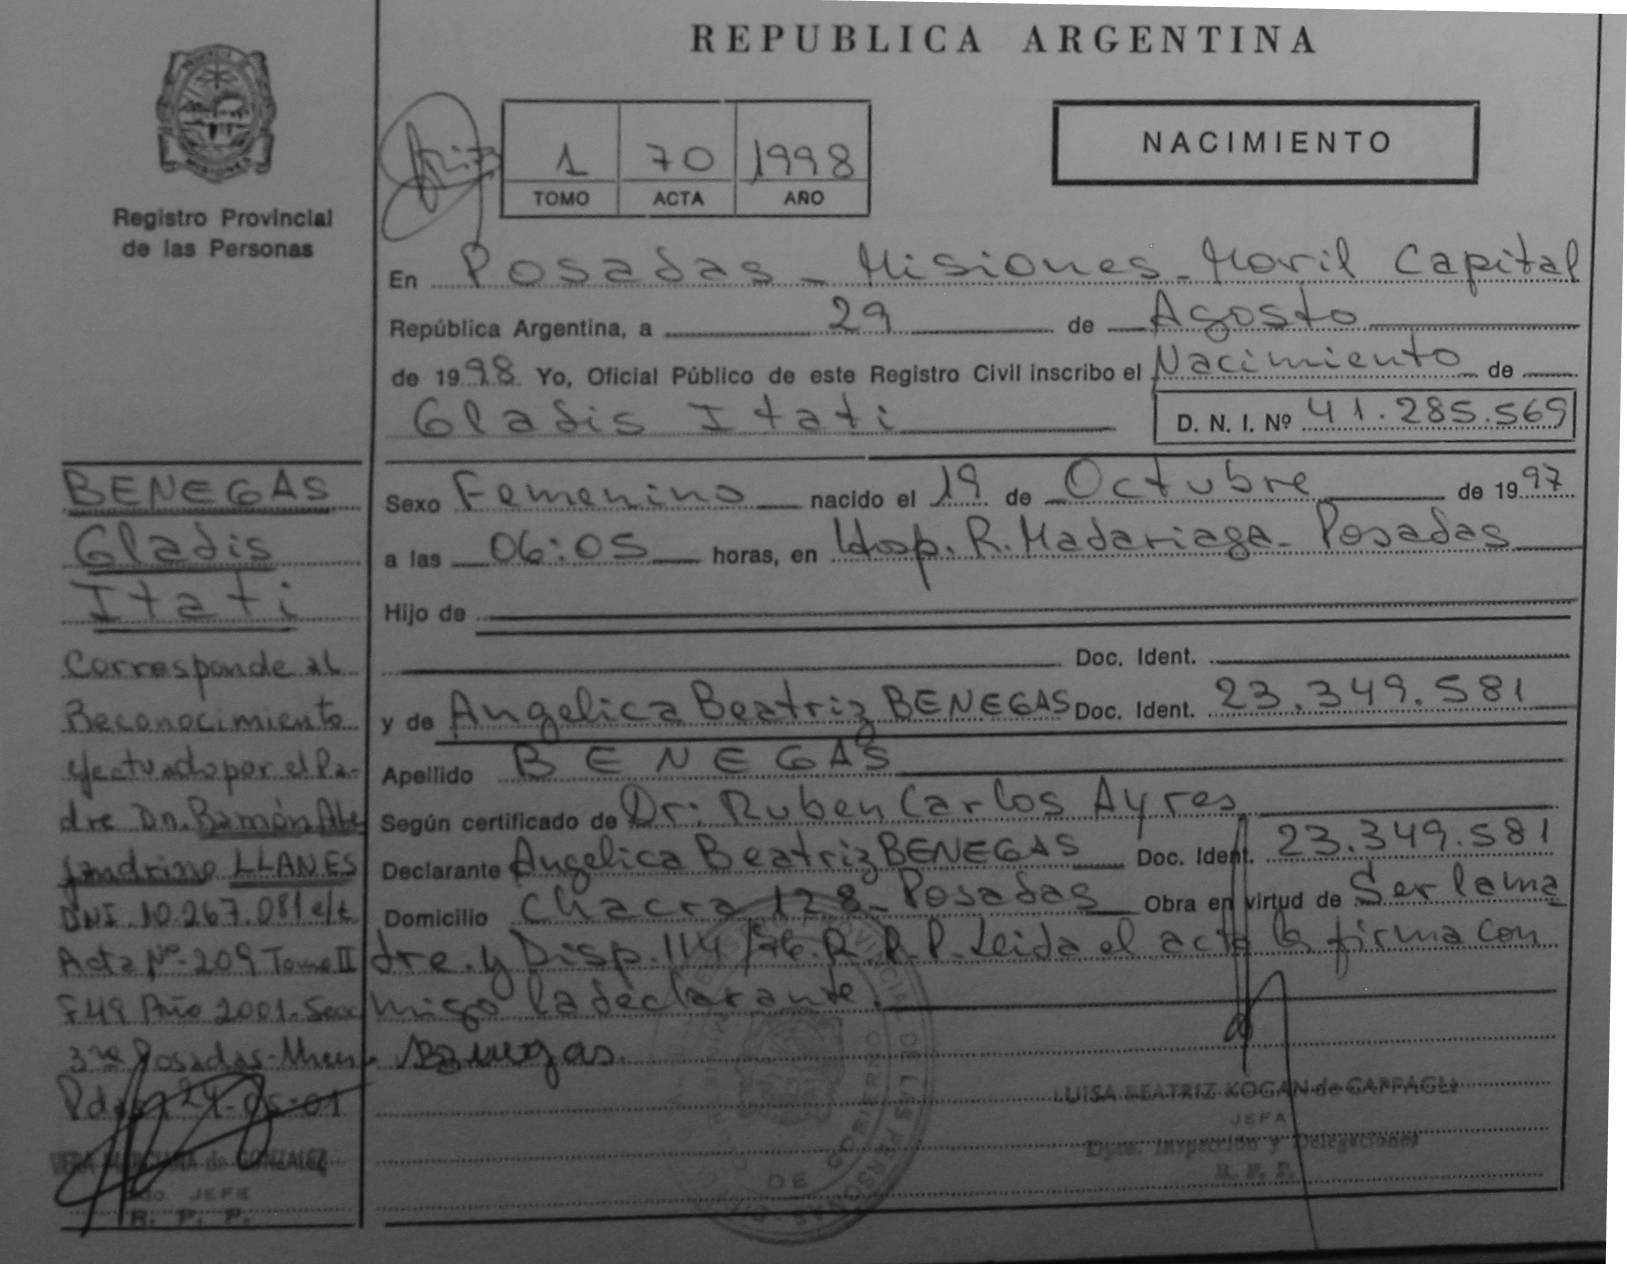 REPUBLICA ARGENTINA
MISIONES
Registro Provincial
de las Personas
1 70 1998
TOMO ACTA AÑO
NACIMIENTO
En Posadas - Misiones - Movil Capital
República Argentina, a 29 de Agosto
de 1998. Yo, Oficial Público de este Registro Civil inscribo el Nacimiento de
Gladis Itati
D. N. I. Nº 41.285.569
Sexo Femenino nacido el 19 de Octubre de 1997
a las 06:05 horas, en Hosp. R. Madariaga - Posadas
Hijo de
Doc. Ident.
y de Angelica Beatriz BENEGAS Doc. Ident. 23.349.581
Apellido BENEGAS
Según certificado de Dr: Ruben Carlos Ayres
Declarante Angelica Beatriz BENEGAS Doc. Ident. 23.349.581
Domicilio Chacra 128 - Posadas Obra en virtud de Ser la ma
dre. y Disp. 114/96. R. P. P. Leida el acta la firma con
migo la declarante.
Benegas
LUISA BEATRIZ KOGAN de CAPPAGLI
JEFA
Dpto. Inspección y Delegaciones
R. P. P.
BENEGAS
Gladis
Itati
Corresponde al
Reconocimiento
efectuado por el Pa-
dre Dn. Ramón Ale
jandrino LLANES
DNI 10.267.081 e/t
Acta Nº 209 Tomo II
F 49 Año 2001. Secc
3ra Posadas - Mnes -
Pdas 24-05-01
VERA de GONZALEZ
JEFE
R. P. P.